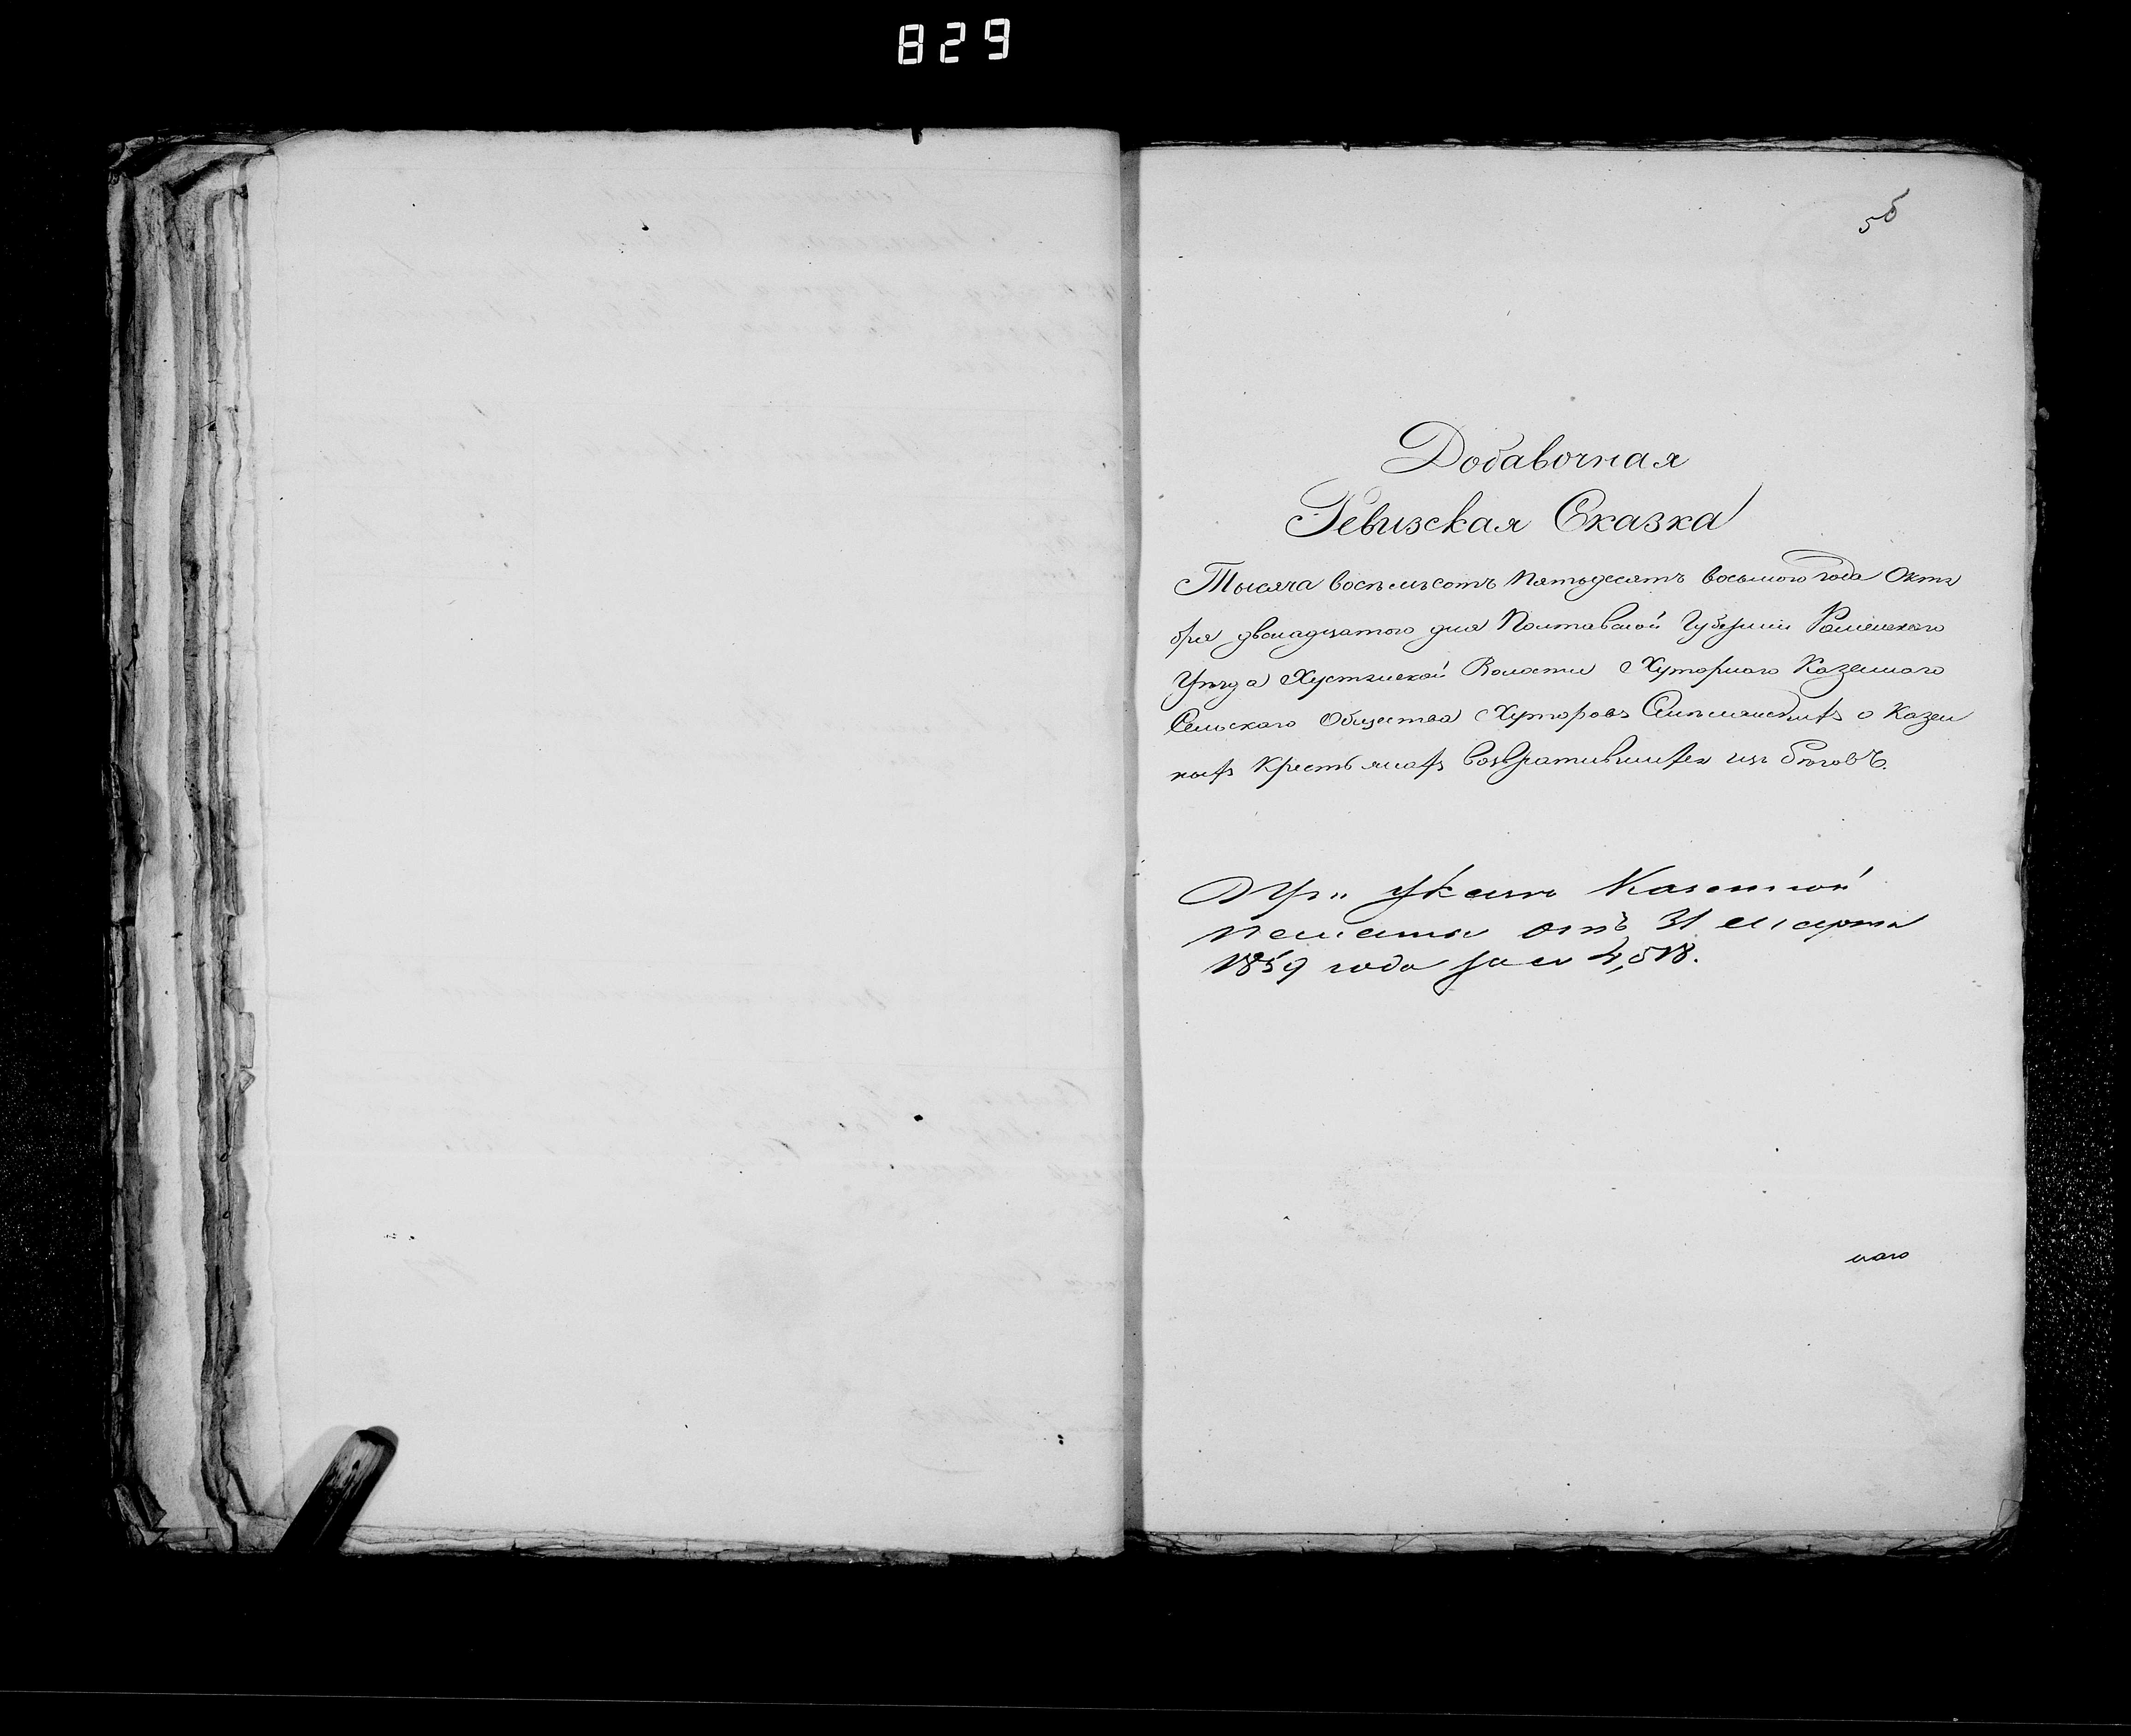 829
55
Добавочная
Ревизская Сказка
Тысяча восемьсотъ пятьдесятъ восьмого года Октя
бря двенадцатого дня Полтавской Губернии Роменского
Уезда Хустянской Волости Хуторного Казенного
Сельского Общества Хуторовъ о Казен
ныхъ Крестьянахъ возвратившихся изъ беговъ.
При указе Казенной
палаты отъ 31 марта
1859 года за № 4,518.
ного